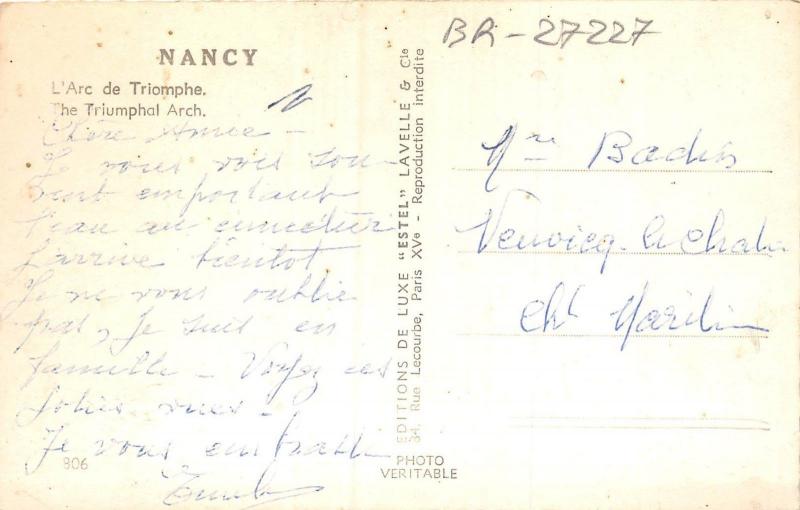 BR-27227
NANCY
L'Arc de Triomphe.
The Triumphal Arch.
Chère Amie -
Je vous vois sou-
vent emportant
l'eau au cimetière
J'arrive bientôt
Je ne vous oublie
pas, Je suis en
famille - Voyez ces
jolies vues -
Je vous embrasse
806
EDITIONS DE LUXE "ESTEL" LAVELLE & Cie
84, Rue Lecourbe, Paris XVe - Reproduction interdite
PHOTO
VERITABLE
Me
Neuvicq-le-Chate
Cht Marit